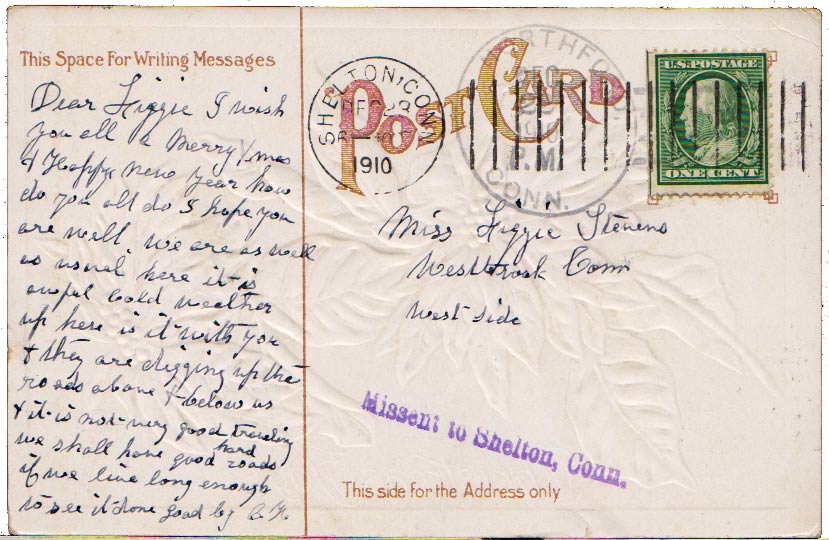 This Space For Writing Messages
Dear Lizzie I wish
you all a Merry Xmas
& Happy new year how
do you all do I hope you
are well. we are as well
as usual here it is
awful cold weather
up here is it with you
& they are digging up the
roads above & below us
& it is not very good traveling
we shall have good hard roads
if we live long enough
to see it done good by
POST CARD
SHELTON, CONN
DEC
1910
NORTHFORD
DEC
1910
P.M.
CONN.
U.S. POSTAGE
ONE CENT
Miss Lizzie Stevens
Westbrook Conn
west side
Missent to Shelton, Conn.
This side for the Address only